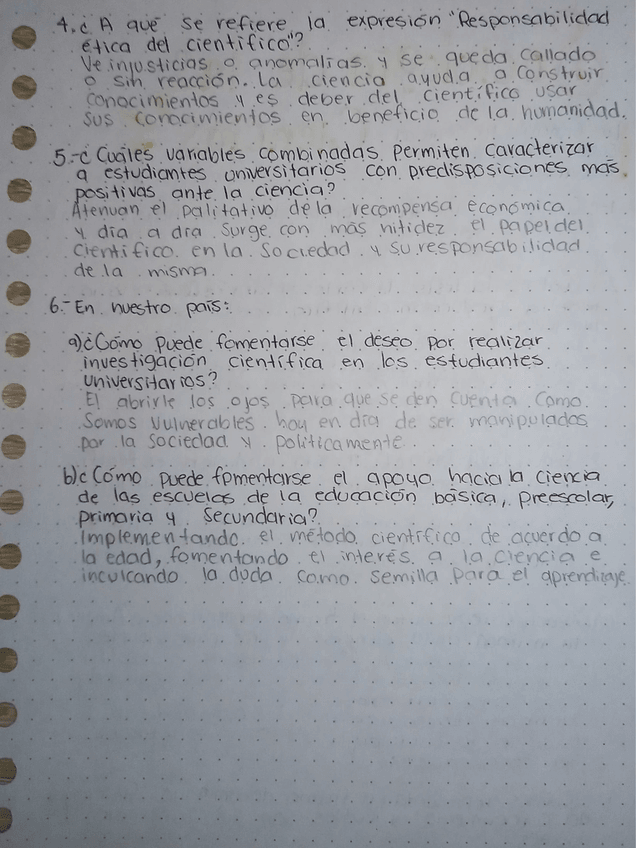 4.¿ A qué se refiere la expresión "Responsabilidad
ética del científico"?
Ve injusticias o anomalías y se queda callado
o sin reacción. La ciencia ayuda a construir
conocimientos y es deber del científico usar
sus conocimientos en beneficio de la humanidad.
5.-¿Cuáles variables combinadas permiten caracterizar
a estudiantes universitarios con predisposiciones más
positivas ante la ciencia?
Atenúan el palitativo de la recompensa económica
y día a día surge con más nitidez el papel del
científico en la sociedad y su responsabilidad
de la misma.
6.-En nuestro país:
a)¿Cómo puede fomentarse el deseo por realizar
investigación científica en los estudiantes
universitarios?
El abrirle los ojos para que se den cuenta como
somos vulnerables hoy en día de ser manipulados
por la sociedad y políticamente.
b)¿Cómo puede fomentarse el apoyo hacia la ciencia
de las escuelas de la educación básica, preescolar,
primaria y secundaria?
Implementando el método científico de acuerdo a
la edad, fomentando el interés a la ciencia e
inculcando la duda como semilla para el aprendizaje